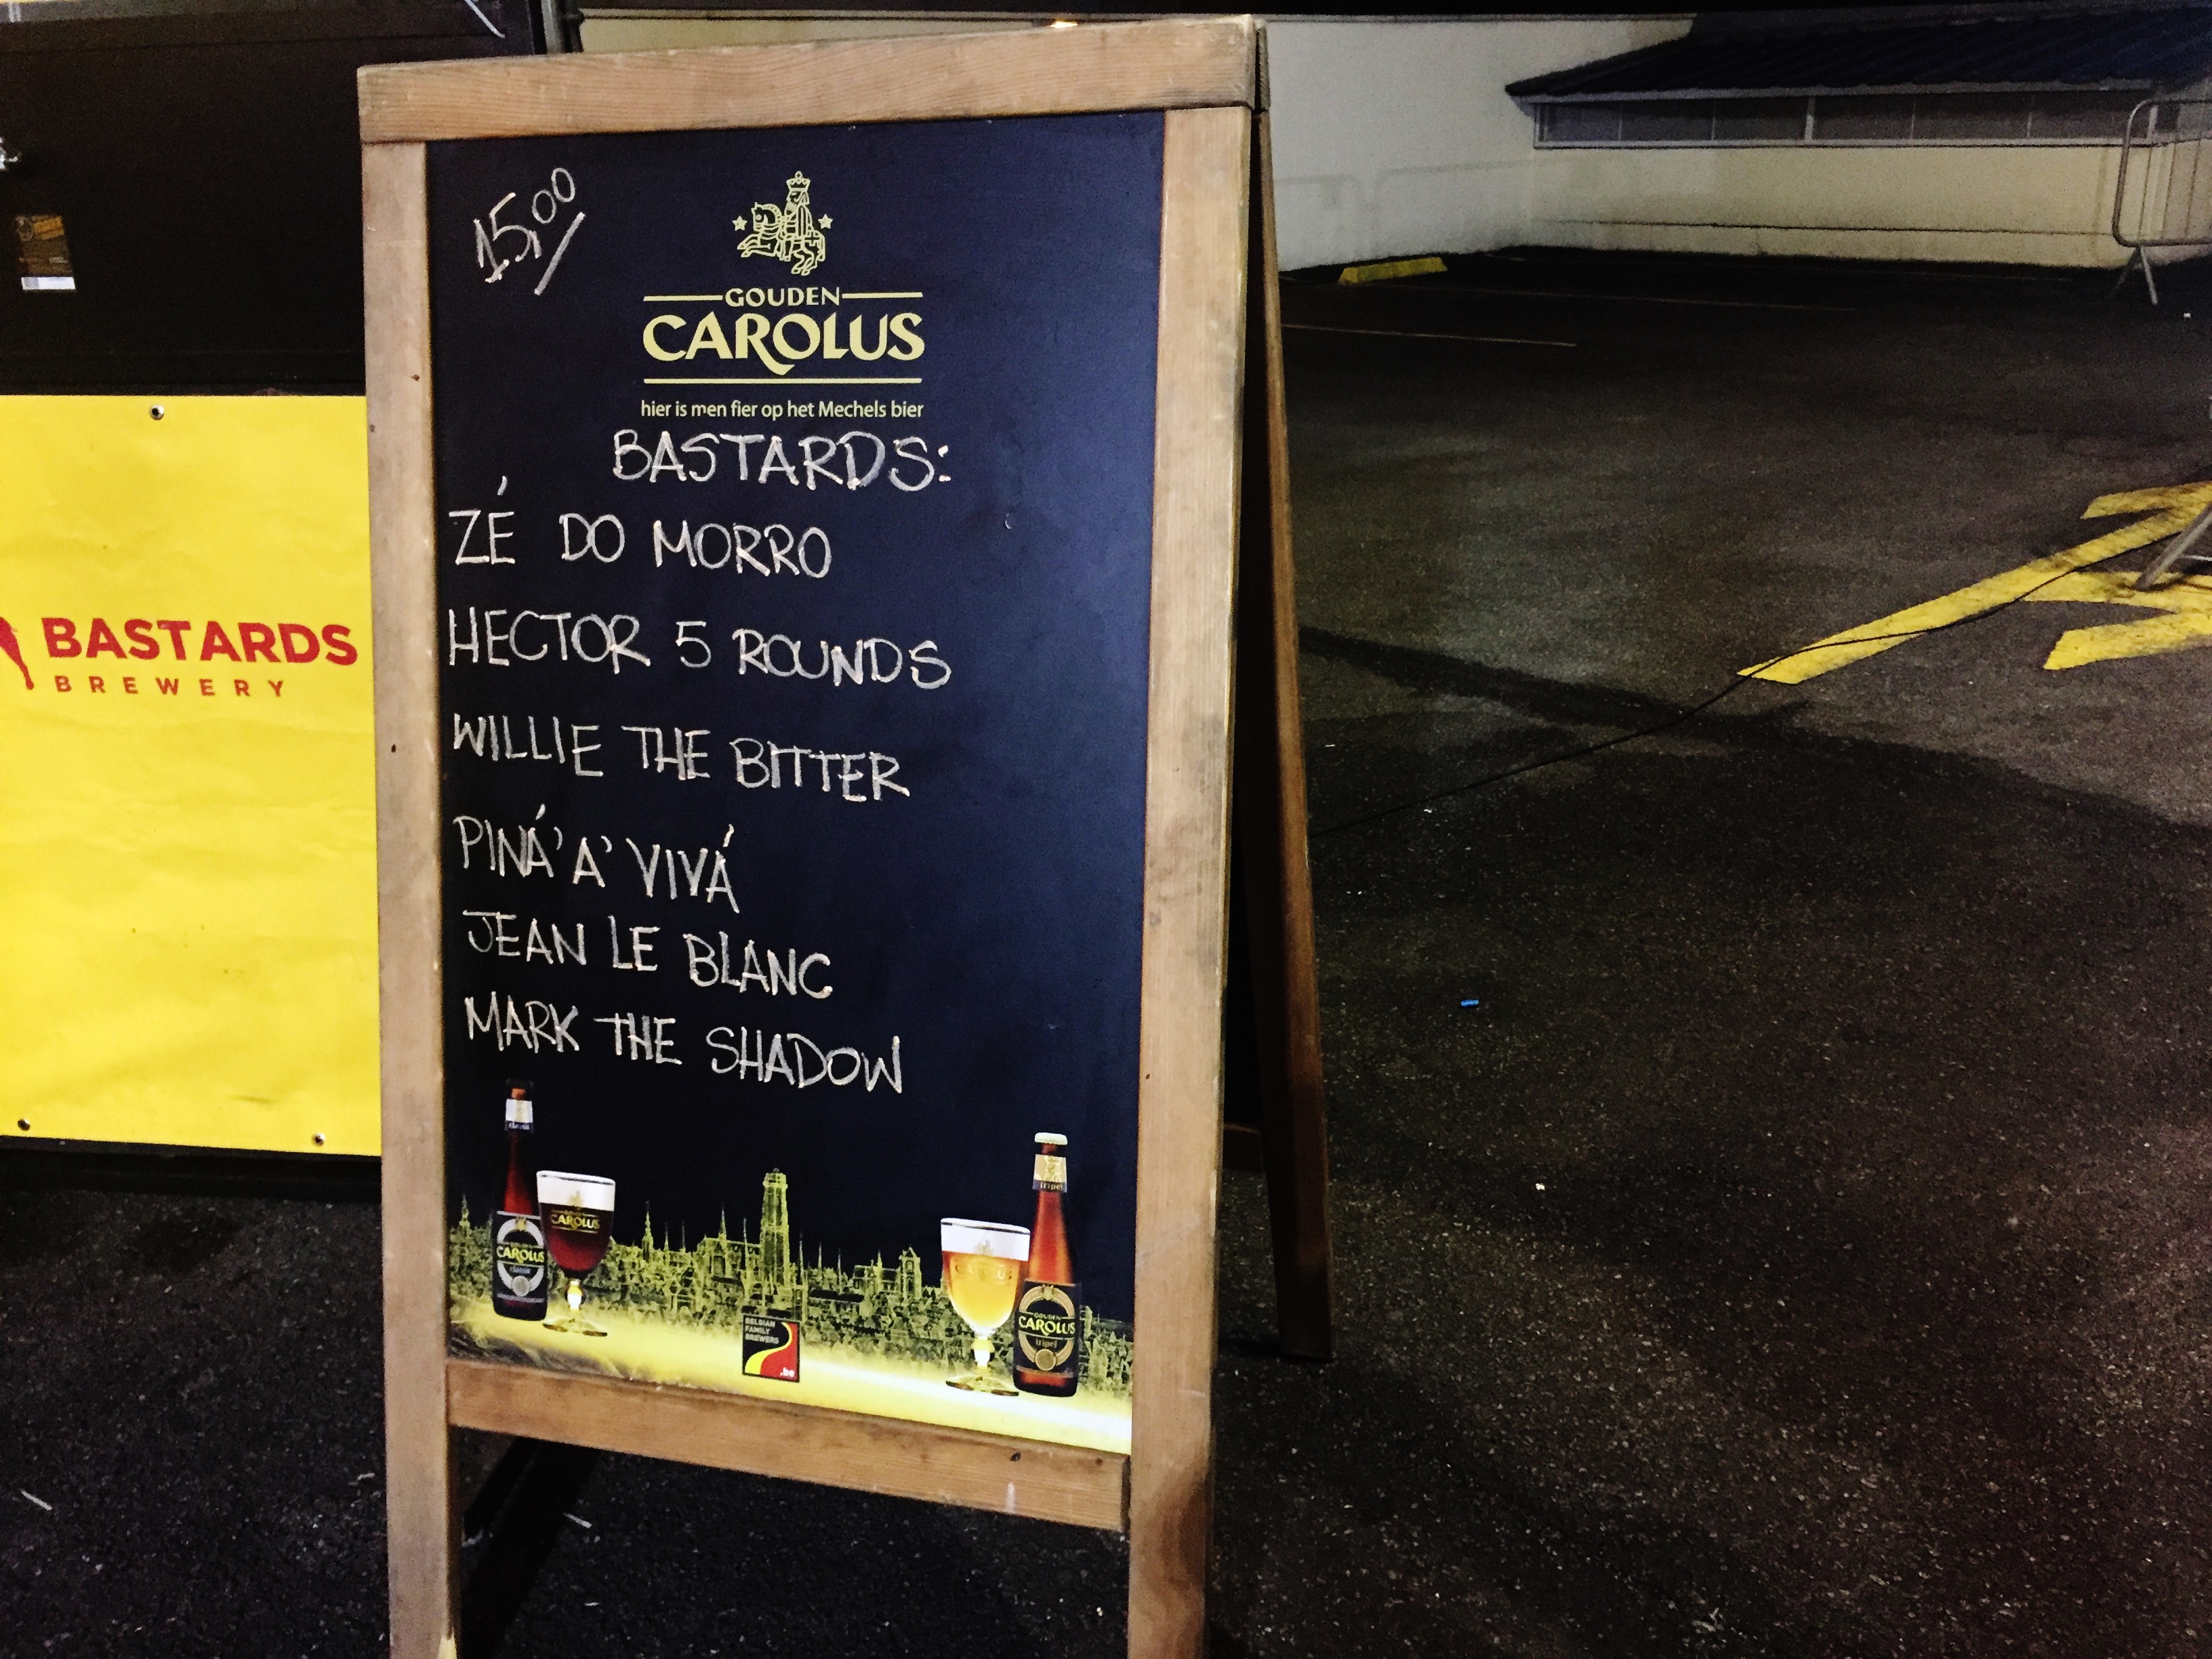 15,00
GOUDEN
CAROLUS
hier is men fier op het Mechels bier
BASTARDS:
ZÉ DO MORRO
HECTOR 5 ROUNDS
WILLIE THE BITTER
PINÁ'A'VIVÁ
JEAN LE BLANC
MARK THE SHADOW
BASTARDS
BREWERY
CAROLUS
classic
CAROLUS
CAROLUS
tripel
GOUDEN
CAROLUS
tripel
BELGIAN
FAMILY
BREWERS
.be